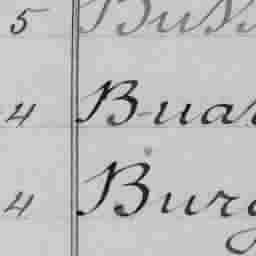 5 But
4 Bua
4 Burg